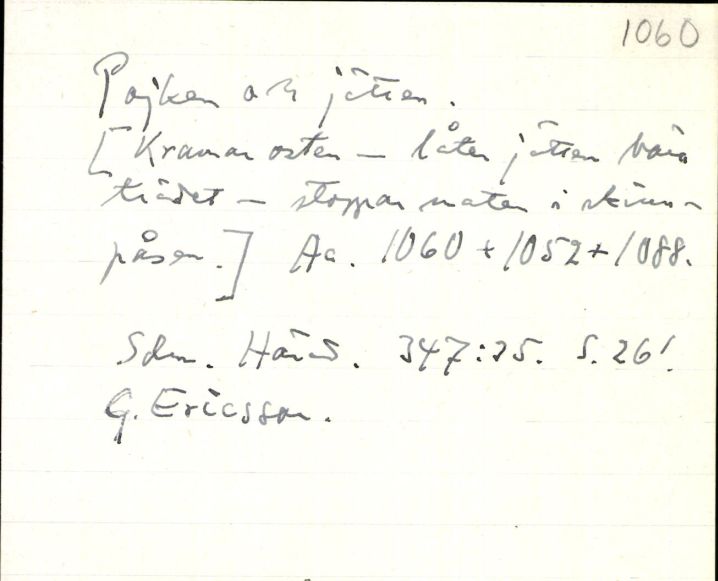 1060
Pojken och jätten.
[Kramar osten – låter jätten bära
trädet – stoppar maten i skinn-
påsen.] Aa. 1060 + 1052 + 1088.
Sdm. Härad. 347:35. S. 26!
G. Ericsson.